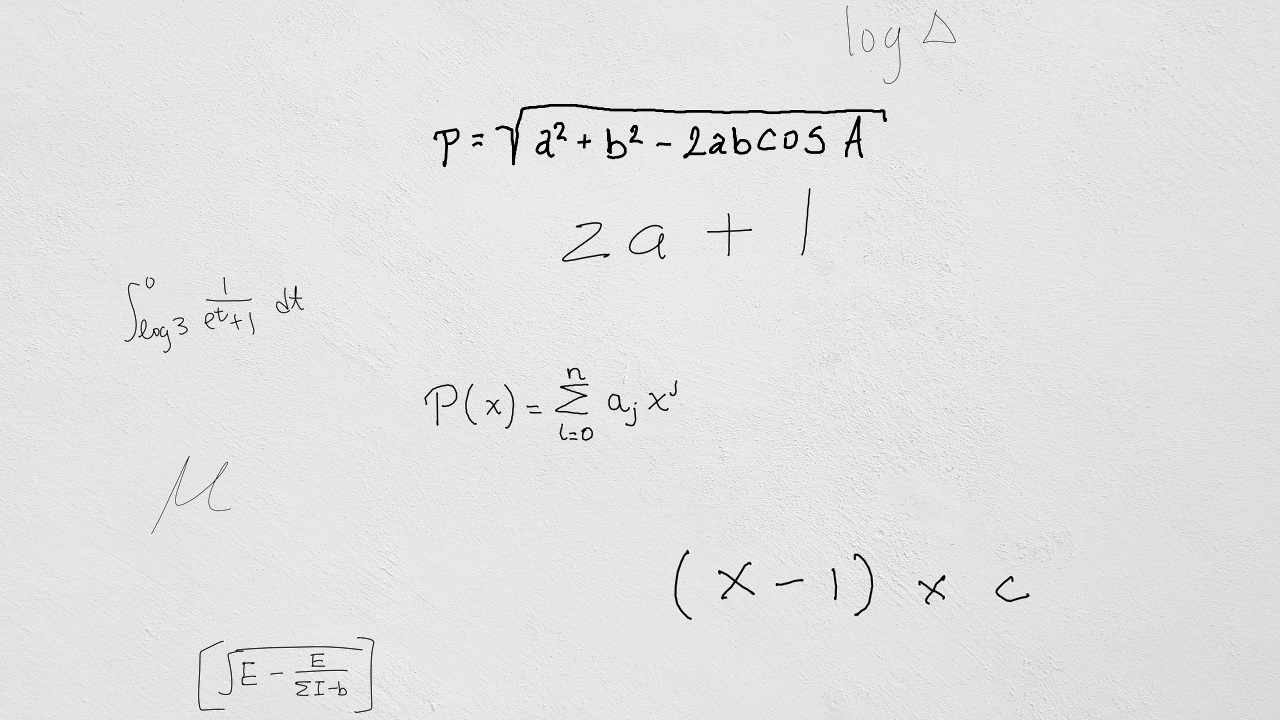 log Δ
p = √(a² + b² - 2ab cos A)
2a + 1
∫_{log 3}^{0} \frac{1}{e^t + 1} dt
P(x) = \sum_{i=0}^{n} a_j x^j
μ
[√(E - \frac{E}{ΣI-b})]
(x - 1) × c